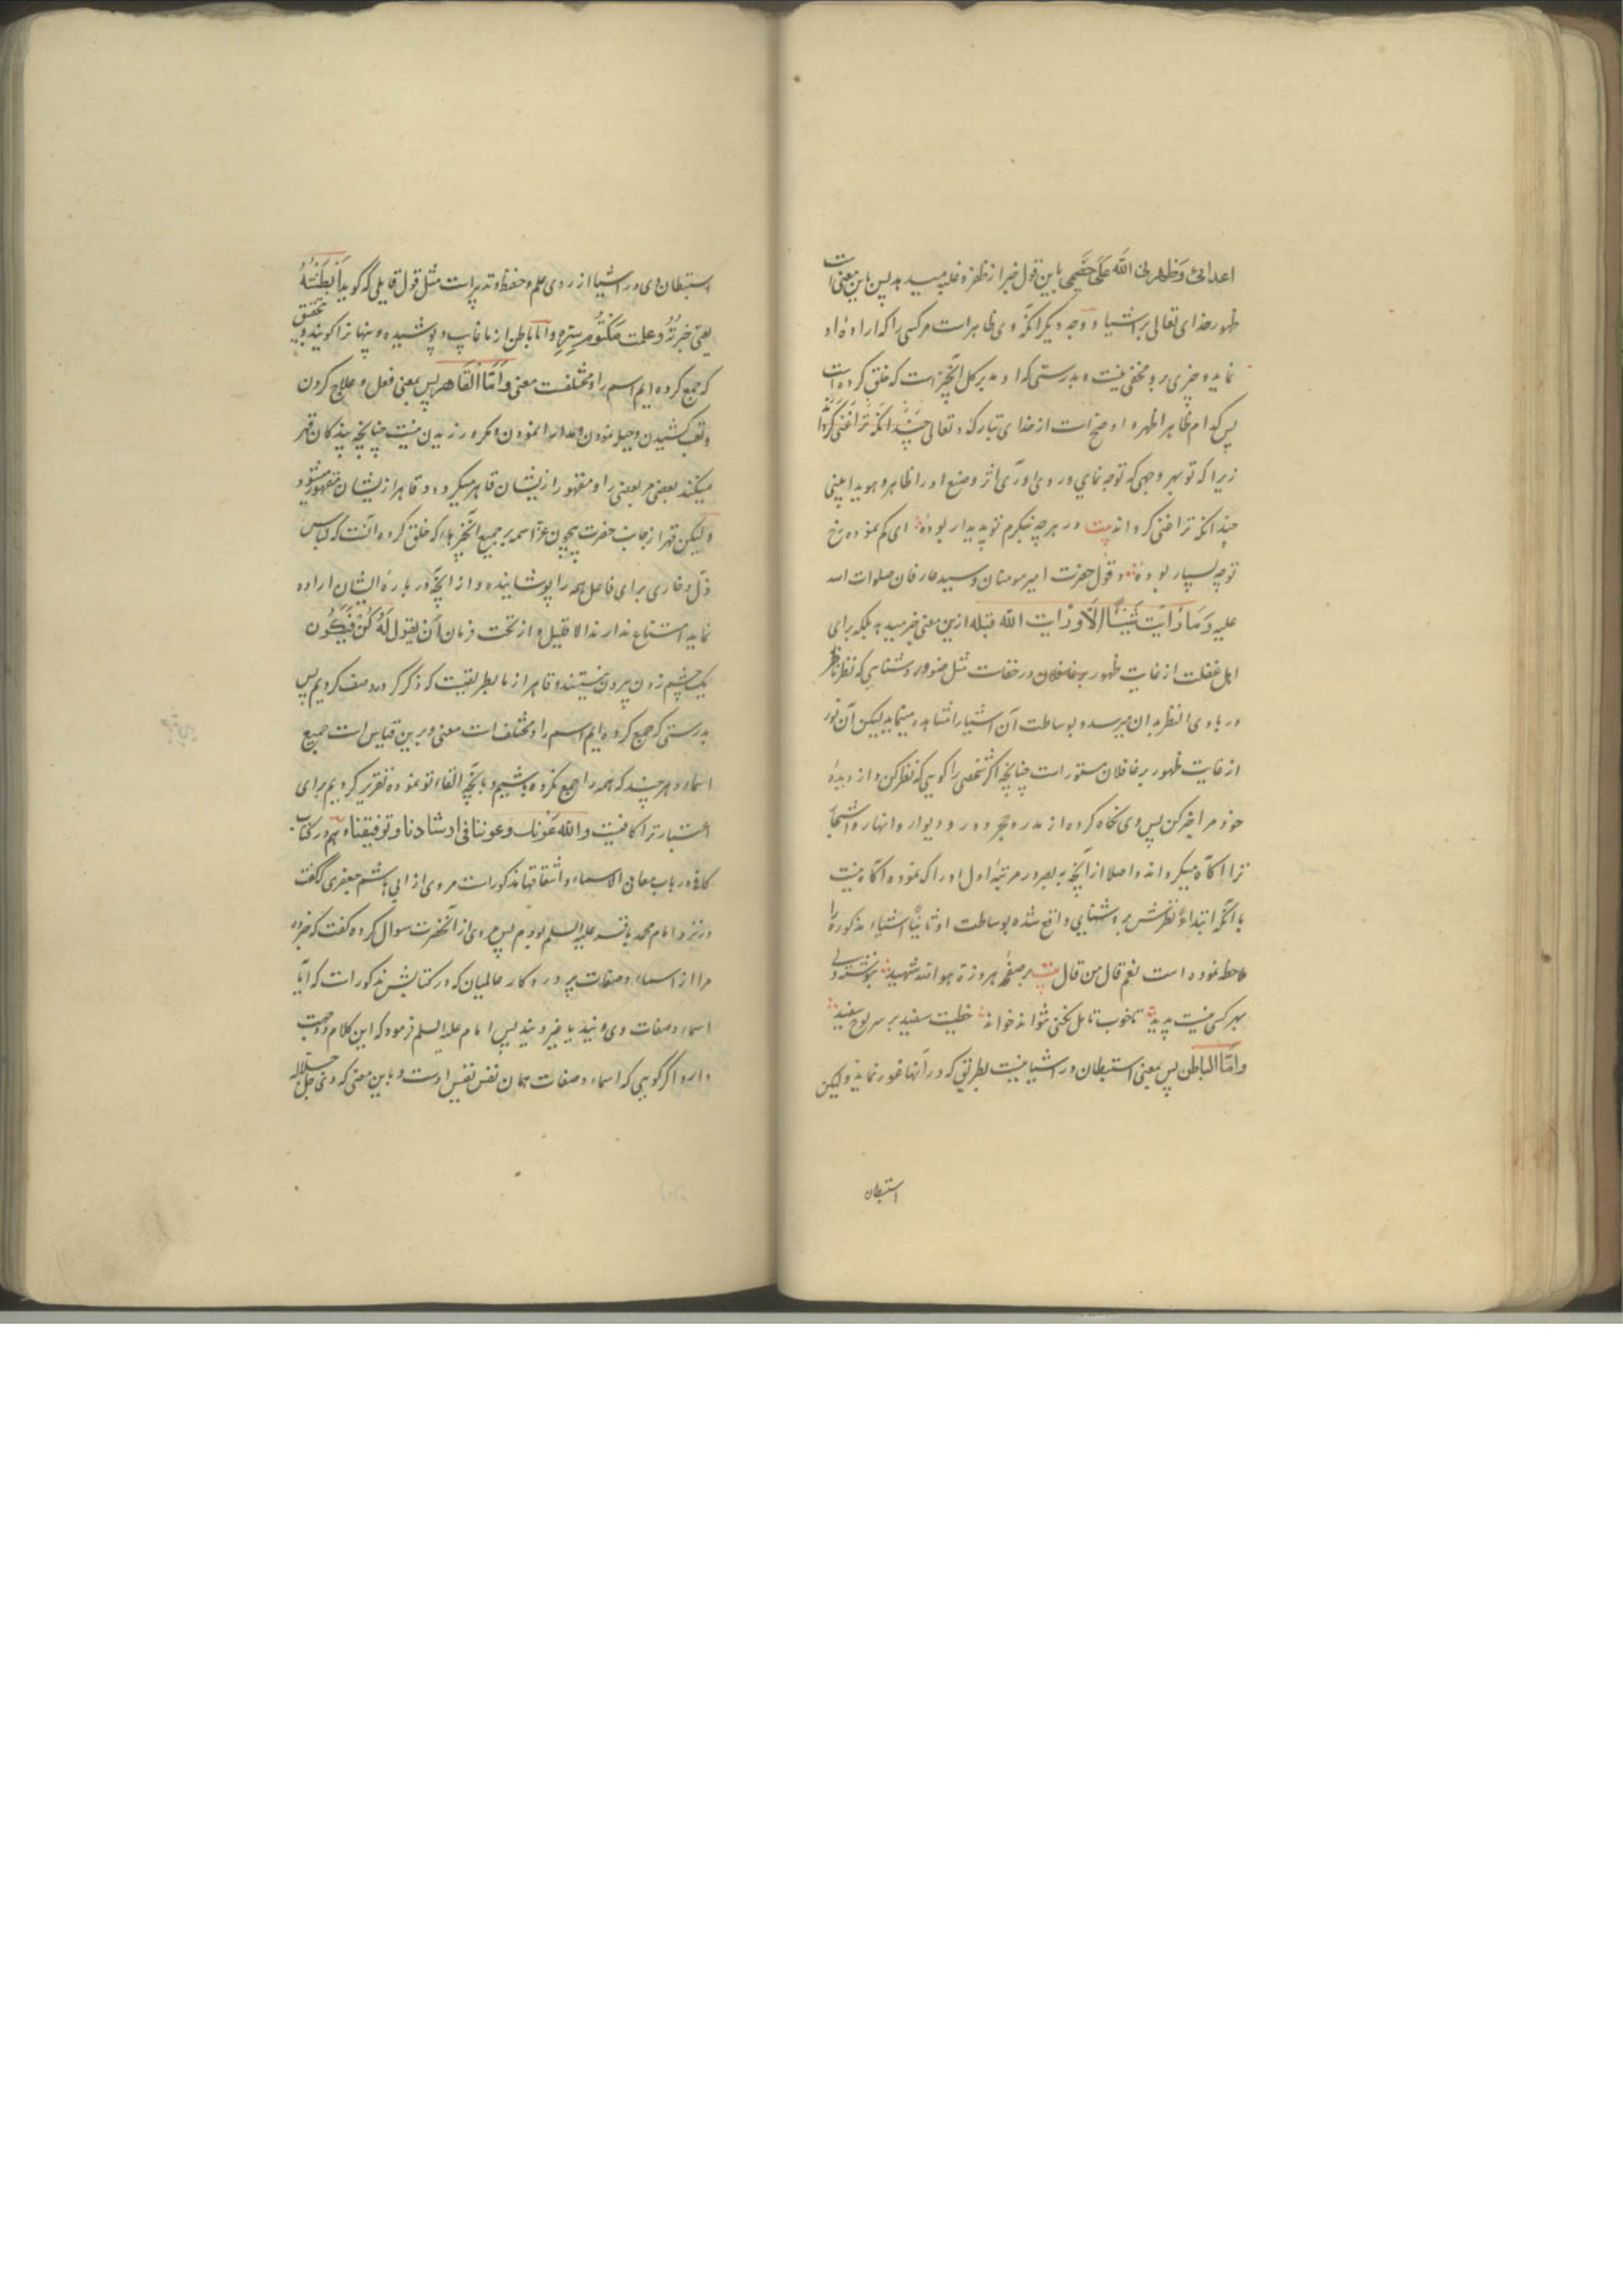 اعدائی وَظهرنی اللّه عَلی خَصمی باین قول خبر از ظفر و غلبه میدهد پس باین معنی است
ظهور خدای تعالی بر اشیا و وجه دیگر آنکه وی ظاهر است مرکسی را که اراده او
نماید و چیزی برو مخفی نیست و بدرستی که او مدبر کل آنچیز است که خلق کرده است
پس کدام ظاهر اظهر و اوضح است از خدای تبارک و تعالی
زیرا که تو بهر وجهی که توجه نمایی و روی آوری اثر و صنع او را ظاهر و هویدا بینی
چندانکه ترا غنی گرداند بیت در هر چه بنگرم تو پدیدار بودهٔ ای کم نموده رخ
تو چه بسیار بودهٔ و قول حضرت امیر مومنان و سید عارفان صلوات الله
علیه وَمَا رَأَیت شَیئًا إلّا وَرَأیت اللّه قبله ازین معنی خبر میدهد بلکه برای
اهل غفلت از غایت ظهور بر غافلان در خفاست مثل ضوء و روشنایی که نظر ناظر
در بادی النظر بدان میرسد و بوساطت آن اشیا را مشاهده مینماید لیکن آن نور
از غایت ظهور بر غافلان مستور است چنانچه اگر شخصی را گویی که نظر کن و از دیدهٔ
خود مرا خبر کن پس وی نگاه کرده از مدر و حجر و در و دیوار و انهار و اشجار
ترا آگاه میگرداند و اصلا از آنچه به بصر در مرتبهٔ اول ادراک نموده آگاه نیست
با آنکه ابتداءً نظرش بر روشنایی واقع شده بوساطت او ثانیًا اشیاء مذکوره را
ملاحظه نموده است نعم قال من قال بیت بر صفحهٔ هر وزرة هو الله شهید بنوشته ولی
بهر کسی نیست پدید تا خوب تامل نکنی نتواند خواند خطیست سفید بر سر لوح سفید
وامّا الباطن پس بمعنی استبطان در اشیا نیست بطریق که در آنها غور نماید ولیکن
استبطان
استبطان وی در اشیا از روی علم و حفظ و تدبیر است مثل قول قایلی که گوید أَبطَنتُهُ
یعنی خبرتُهُ وعلمت مَکتُوم سِرّهِ واما باطن از ما غایب و پوشیده و پنهانرا گویند و بتحقیق
که جمع کرده ایم اسم را و مختلفست معنی وَأَمّا القَاهر پس بمعنی فعل و علاج کردن
و تعب کشیدن و حیله نمودن و مدارا نمودن و مکر ورزیدن نیست چنانچه بندکان قهر
میکنند بعضی مر بعضی را و مقهور از ایشان قاهر میگردد و قاهر از ایشان مقهور میشود
ولیکن قهر از جانب حضرت بیچون عزّ اسمه بر جمیع آنچیزهاء که خلق کرده آنست که لباس
ذلّ و خاری برای فاعل همه را پوشاینده و از آنچه در بارهٔ ایشان اراده
نماید امتناع ندارند الا قلیل و از تحت فرمان أن یقول لَهُ کُن فَیَکُون
یک چشم زدن بیرون نیستند و قاهر از ما بطریقیست که ذکر کرد و وصف کردیم پس
بدرستی که جمع کرده ایم اسم را و مختلف است معنی و برین قیاس است جمیع
اسماء و هر چند که همه را جمع نکرده باشیم و بانچه القاء تو نموده تقریر کردیم برای
اعتبار ترا کافیست واللّه عَونك وعوننا فی ارشادنا وتوفیقنا و هم در کتاب
کافی در باب معانی الاسماء و اشتقاقها مذکور است مروی از ابی هاشم جعفری که گفت
در نزد امام محمد باقر علیه السلم بودم پس مردی از آنحضرت سوال کرده گفت که خبر ده
مرا از اسماء و صفات پرورده کار عالمیان که در کتابش مذکور است که آیا
اسماء و صفات وی ویند یا غیر ویند پس امام علیه السلم فرمود که این کلام دو جهت
دارد اگر گویی که اسماء و صفات همان نفس نفیس اوست و باین معنی که وی جل جلاله